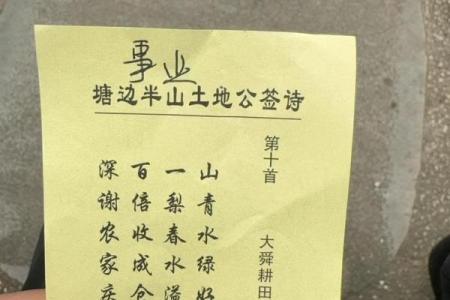 事业
塘边半山土地公签诗
第十首
大舜耕田
山青水绿好
一梨春水溢
百倍收成仓
深谢农家庆